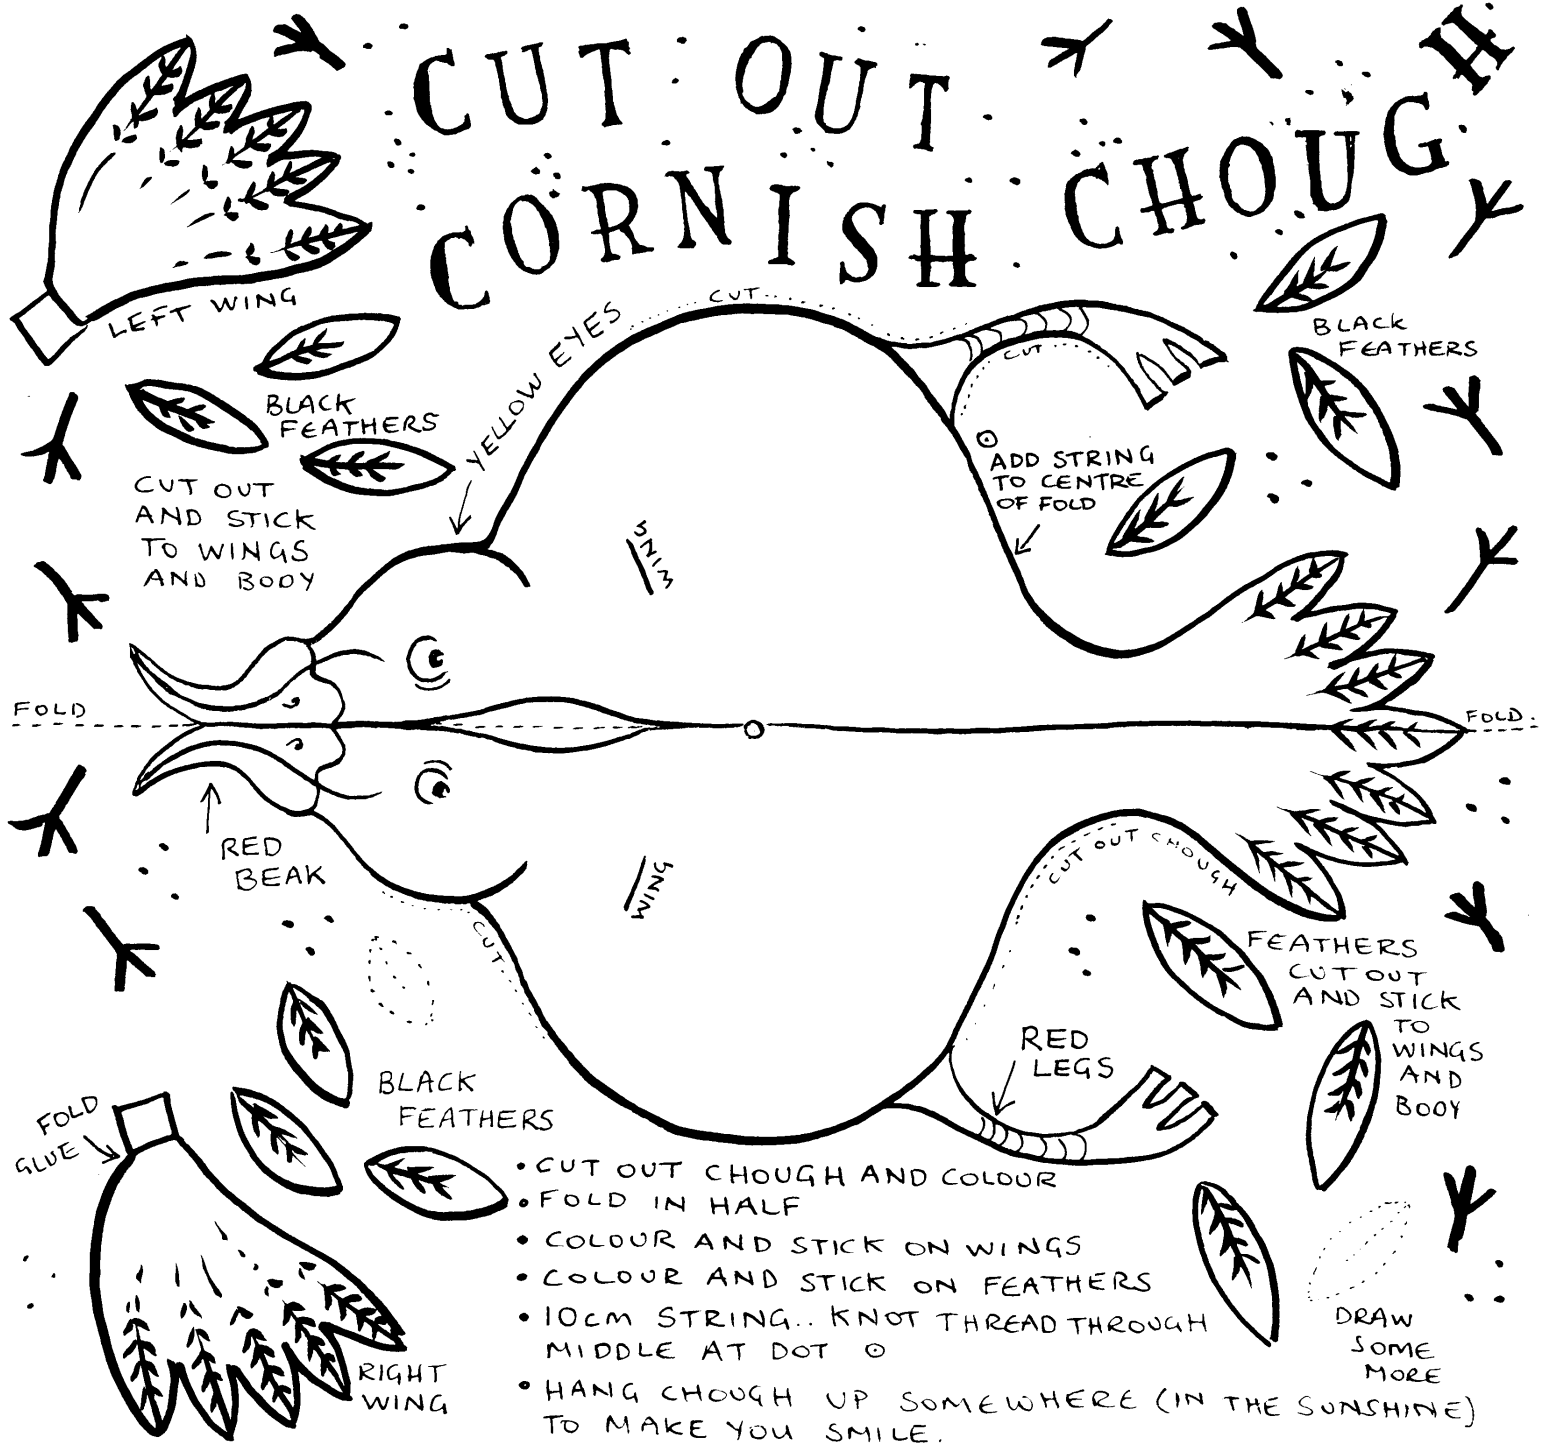 CUT OUT
CORNISH CHOUGH
LEFT WING
BLACK
FEATHERS
CUT OUT
AND STICK
TO WINGS
AND BODY
YELLOW EYES
CUT
CUT
BLACK
FEATHERS
ADD STRING
TO CENTRE
OF FOLD
WING
FOLD
FOLD.
RED
BEAK
WING
CUT
CUT OUT CHOUGH
FEATHERS
CUT OUT
AND STICK
TO
WINGS
AND
BODY
RED
LEGS
BLACK
FEATHERS
FOLD
GLUE
RIGHT
WING
• CUT OUT CHOUGH AND COLOUR
• FOLD IN HALF
• COLOUR AND STICK ON WINGS
• COLOUR AND STICK ON FEATHERS
• 10cm STRING.. KNOT THREAD THROUGH
MIDDLE AT DOT ⊙
• HANG CHOUGH UP SOMEWHERE (IN THE SUNSHINE)
TO MAKE YOU SMILE.
DRAW
SOME
MORE